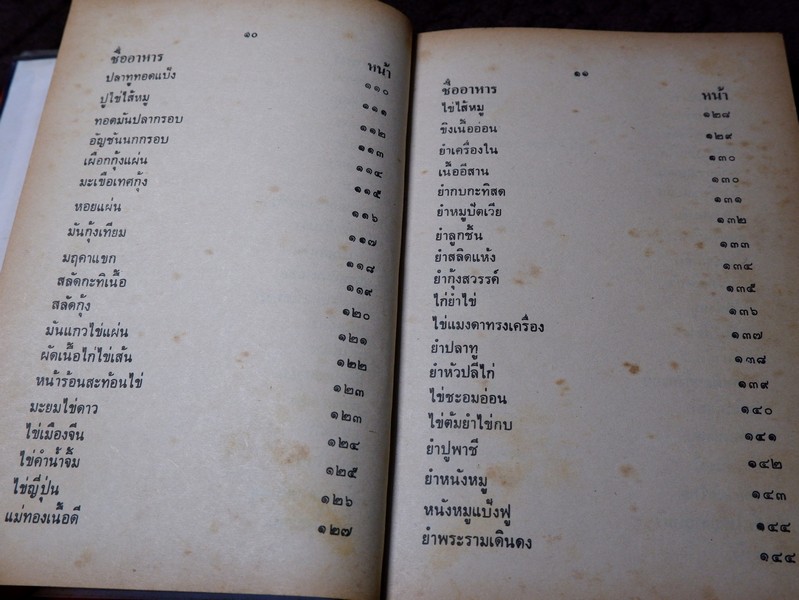 ๑๐
ชื่ออาหาร หน้า
ปลาทูทอดแป้ง ๑๑๐
ปูไข่ไส้หมู ๑๑๑
ทอดมันปลากรอบ ๑๑๒
อัญชันนกกรอบ ๑๑๓
เผือกกุ้งแผ่น ๑๑๔
มะเขือเทศกุ้ง ๑๑๕
หอยแผ่น ๑๑๖
มันกุ้งเทียม ๑๑๗
มฤคาแขก ๑๑๘
สลัดกะทิเนื้อ ๑๑๙
สลัดกุ้ง ๑๒๐
มันแกวไข่แผ่น ๑๒๑
ผัดเนื้อไก่ไข่เส้น ๑๒๒
หน้าร้อนสะท้อนไข่ ๑๒๓
มะยมไข่ดาว ๑๒๓
ไข่เมืองจีน ๑๒๔
ไข่คำน้ำจิ้ม ๑๒๕
ไข่ญี่ปุ่น ๑๒๖
แม่ทองเนื้อดี ๑๒๗
๑๑
ชื่ออาหาร หน้า
ไข่ไส้หมู ๑๒๘
ขิงเนื้ออ่อน ๑๒๙
ยำเครื่องใน ๑๓๐
เนื้ออีสาน ๑๓๐
ยำกบกะทิสด ๑๓๑
ยำหมูปัตเวีย ๑๓๒
ยำลูกชิ้น ๑๓๓
ยำสลิดแห้ง ๑๓๔
ยำกุ้งสวรรค์ ๑๓๕
ไก่ยำไข่ ๑๓๖
ไข่แมงดาทรงเครื่อง ๑๓๗
ยำปลาทู ๑๓๘
ยำหัวปลีไก่ ๑๓๙
ไข่ชะอมอ่อน ๑๔๐
ไข่ต้มยำไข่กบ ๑๔๑
ยำปูพาชี ๑๔๒
ยำหนังหมู ๑๔๓
หนังหมูแป้งฟู ๑๔๔
ยำพระรามเดินดง ๑๔๕